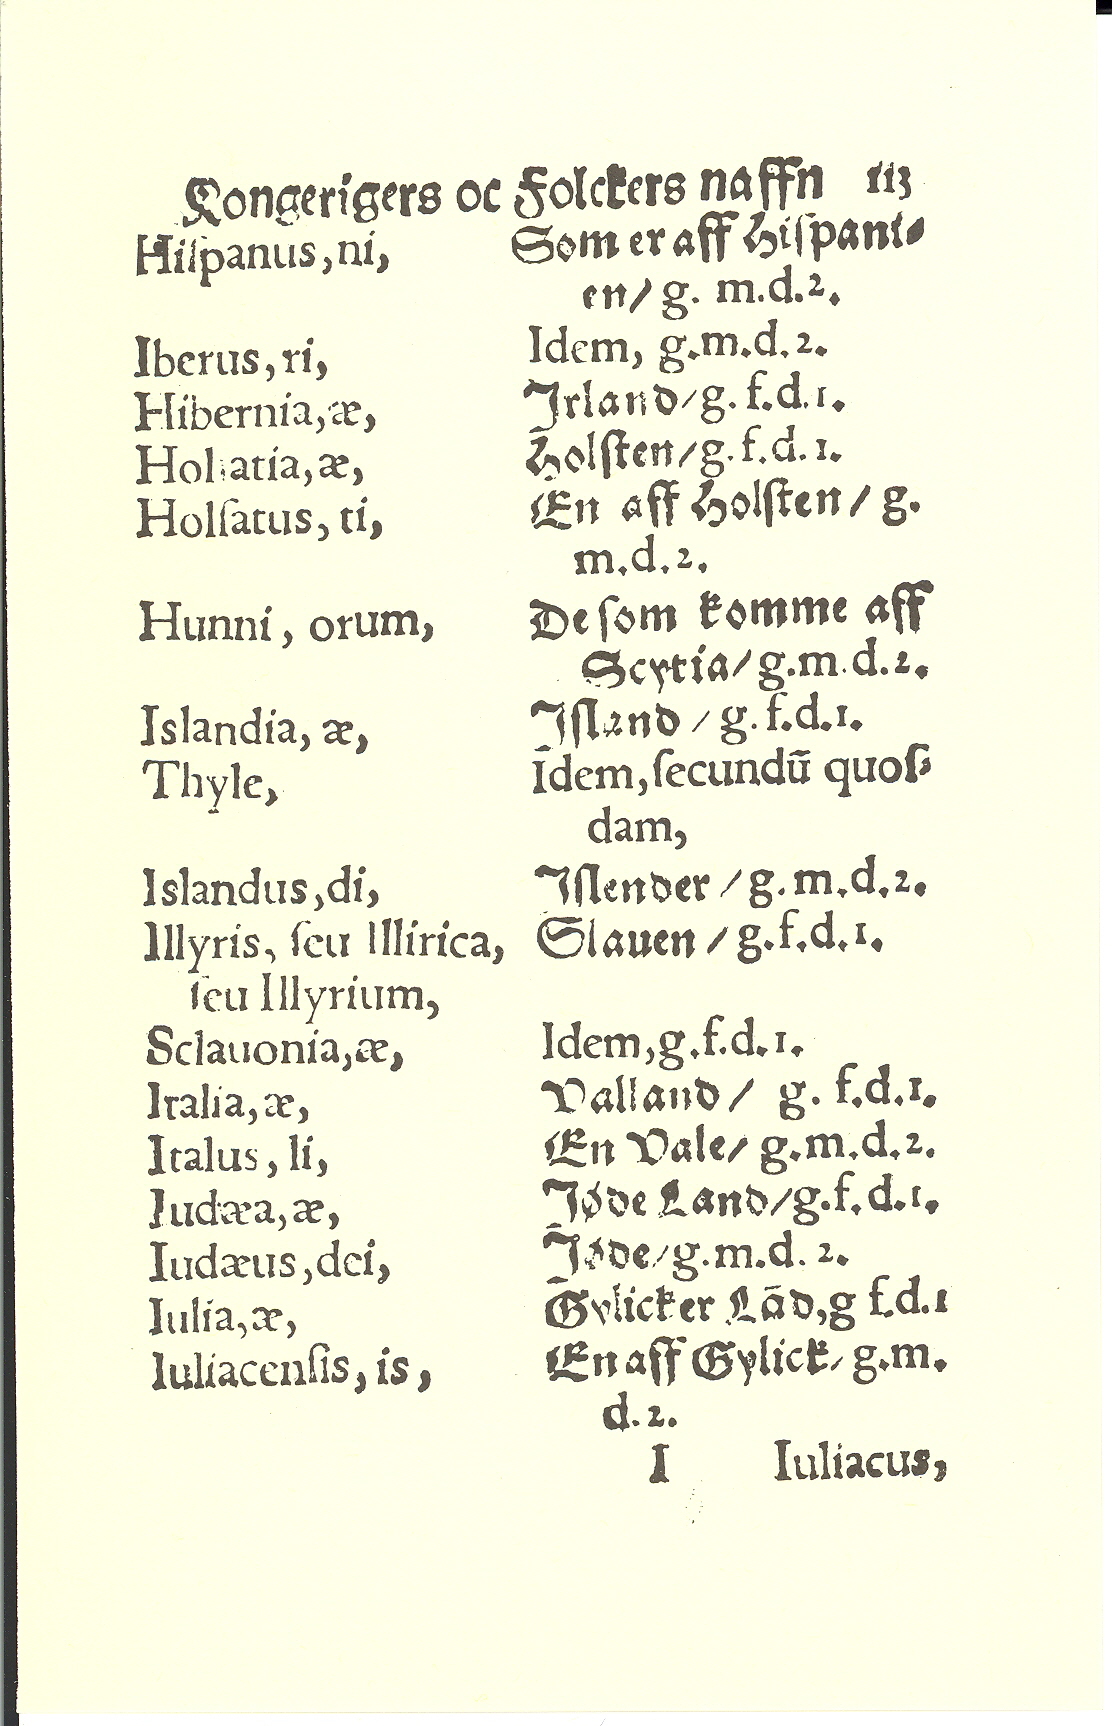 Kongerigers oc Folckers naffn 113
Hiſpanus, ni, Som er aff Hiſpani⸗
en/ g. m.d.2.
Iberus, ri, Idem, g.m.d.2.
Hibernia, æ, Jrland/ g. f.d.1.
Holſatia, æ, Holſten/ g. f.d.1.
Holſatus, ti, En aff Holſten/ g.
m.d.2.
Hunni, orum, De ſom komme aff
Scytia/ g.m.d.2.
Islandia, æ, Jſland/ g. f.d.1.
Thyle, Idem, ſecundũ quoſ⸗
dam,
Islandus, di, Jſlender/ g.m.d.2.
Illyris, ſeu Illirica, Slauen/ g.f.d.1.
ſeu Illyrium,
Sclauonia, æ, Idem, g.f.d.1.
Italia, æ, Valland/ g. f.d.1.
Italus, li, En Vale/ g.m.d.2.
Iudæa, æ, Jøde Land/ g.f.d.1.
Iudæus, dei, Jøde/ g.m.d.2.
Iulia, æ, Gylicker Lād, g f.d.1
Iuliacenſis, is, En aff Gylick/ g.m.
d.2.
I Iuliacus,